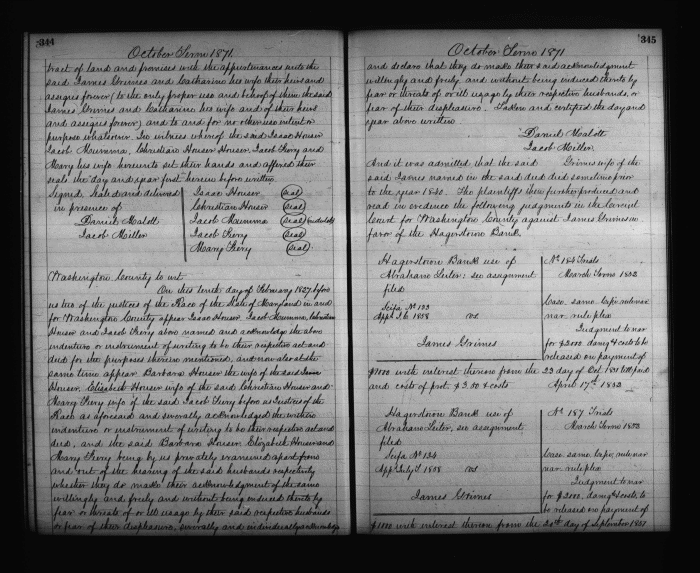 344
October Term 1871
tract of land and premises with the appurtenances unto the
said James Grimes and Catharine his wife their heirs and
assigns forever, to the only proper use and behoof of them the said
James Grimes and Catharine his wife and of their heirs
and assigns forever, and to and for no other use intent or
purpose whatever. In witness whereof the said Isaac Houser
Jacob Mumma, Christian Houser, Jacob Fiery and
Mary his wife hereunto set their hands and affixed their
seals the day and year first herein before written.
Signed, Sealed and delivered
in presence of
Daniel Malott
Jacob Miller
Isaac Houser (Seal)
Christian Houser (Seal)
Jacob Mumma (Seal)
Jacob Fiery (Seal)
Mary Fiery (Seal)
Washington County to wit
On this tenth day of February 1827 before
us two of the justices of the Peace of the State of Maryland in and
for Washington County appear Isaac Houser, Jacob Mumma, Christian
Houser and Jacob Fiery above named and acknowledge the above
indenture or instrument of writing to be their respective act and
deed for the purposes therein mentioned, and now also at the
same time appear Barbara Houser the wife of the said Isaac
Houser, Elizabeth Houser wife of the said Christian Houser and
Mary Fiery wife of the said Jacob Fiery before us Justices of the
Peace as aforesaid and severally acknowledged the within
indenture or instrument of writing to be their respective act and
deed, and the said Barbara Houser, Elizabeth Houser and
Mary Fiery being by us privately examined apart from
and out of the hearing of the said husbands respectively
whether they do make their acknowledgment of the same
willingly and freely and without being induced thereto by
fear or threats of or ill usage by their said respective husbands
or fear of their displeasure, severally and individually
345
October Term 1871
and declare that they do make their said acknowledgment
willingly and freely and without being induced thereto by
fear or threats of or ill usage by their respective husbands, or
fear of their displeasure. Taken and certified the day and
year above written
Daniel Malott
Jacob Miller.
And it was admitted that the said Grimes wife of the
said James named in the said deed died sometime prior
to the year 1830. The plaintiffs then further produced and
read in evidence the following judgments in the Circuit
Court for Washington County against James Grimes in
favor of the Hagerstown Bank
Hagerstown Bank use of
Abraham Leiter: see assignment
filed
Scifa No 133
vs
James Grimes
No 184 Trials
March Term 1853
Case. same.
nar. rule plea
Judgment to nar
for $2000. damg & costs to be
released on payment of
$1000 with interest thereon from the 23 day of Oct. 1851 till paid
and costs of prot. $3.50 & costs April 17th 1853
Hagerstown Bank use of
Abraham Leiter, see assignment
filed
Scifa No 134
vs
James Grimes
No 187 Trials
March Term 1853
Case. same.
nar. rule plea
Judgment to nar
for $2000. damg & costs, to
be released on payment of
$1000 with interest thereon from the day of September 1851